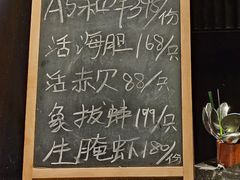 A5和牛398/份
活海胆168/只
活赤贝88/只
象拔蚌199/只
生腌虾180/份